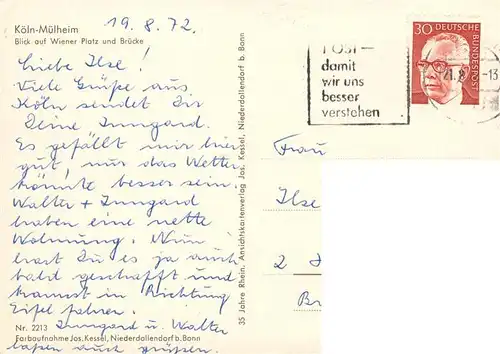 Köln-Mülheim
Blick auf Wiener Platz und Brücke
19.8.72.
Liebe Ilse!
Viele Grüße aus
Köln sendet Dir
Deine Irmgard.
Es gefällt mir hier
gut, nur das Wetter
könnte besser sein.
Walter + Irmgard
haben eine nette
Wohnung. Nun
hast Du es ja auch
bald geschafft und
kannst in Richtung
Eifel fahren.
Irmgard u. Walter
lassen auch grüßen.
Nr. 2213
Farbaufnahme Jos. Kessel, Niederdollendorf b. Bonn
35 Jahre Rhein. Ansichtskartenverlag Jos. Kessel, Niederdollendorf b. Bonn
POST –
damit
wir uns
besser
verstehen
30
DEUTSCHE
BUNDESPOST
21.8
-13
Frau
Ilse
2